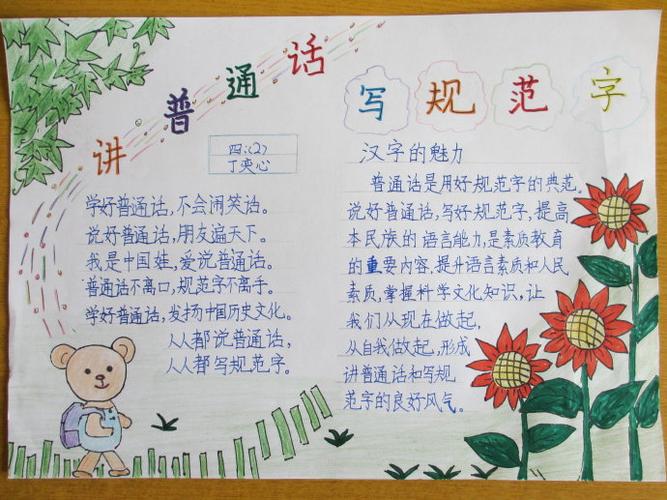 讲普通话
写规范字
四:(2)
丁奕心
学好普通话,不会闹笑话。
说好普通话,朋友遍天下。
我是中国娃,爱说普通话。
普通话不离口,规范字不离手。
学好普通话,发扬中国历史文化。
人人都说普通话,
人人都写规范字。
汉字的魅力
普通话是用好规范字的典范。
说好普通话,写好规范字,提高
本民族的语言能力,是素质教育
的重要内容,提升语言素质和人民
素质,掌握科学文化知识,让
我们从现在做起,
从自我做起,形成
讲普通话和写规
范字的良好风气。